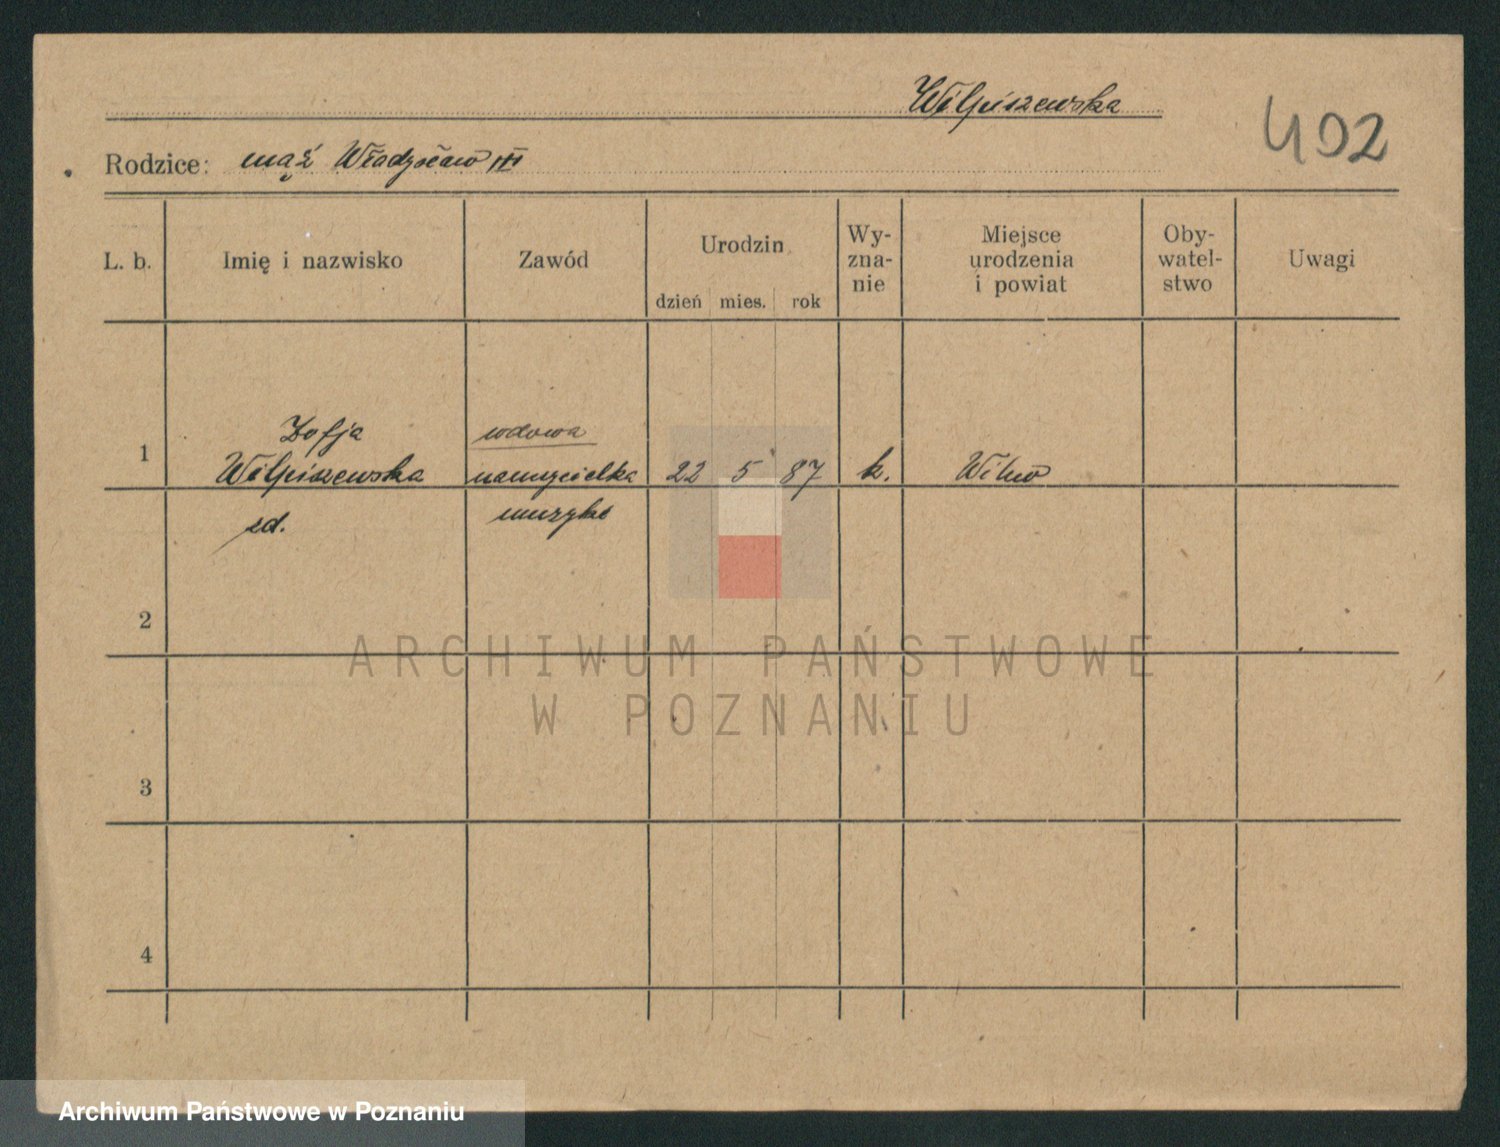 Wilpiszewska
402
Rodzice: mąż Władysław III
L. b.
Imię i nazwisko
Zawód
Urodzin
dzień mies. rok
Wy-
zna-
nie
Miejsce
urodzenia
i powiat
Oby-
watel-
stwo
Uwagi
1
Zofja
Wilpiszewska
zd.
wdowa
nauczycielka
muzyki
22 5 87
k.
Wilno
2
3
4
ARCHIWUM PAŃSTWOWE
W POZNANIU
Archiwum Państwowe w Poznaniu